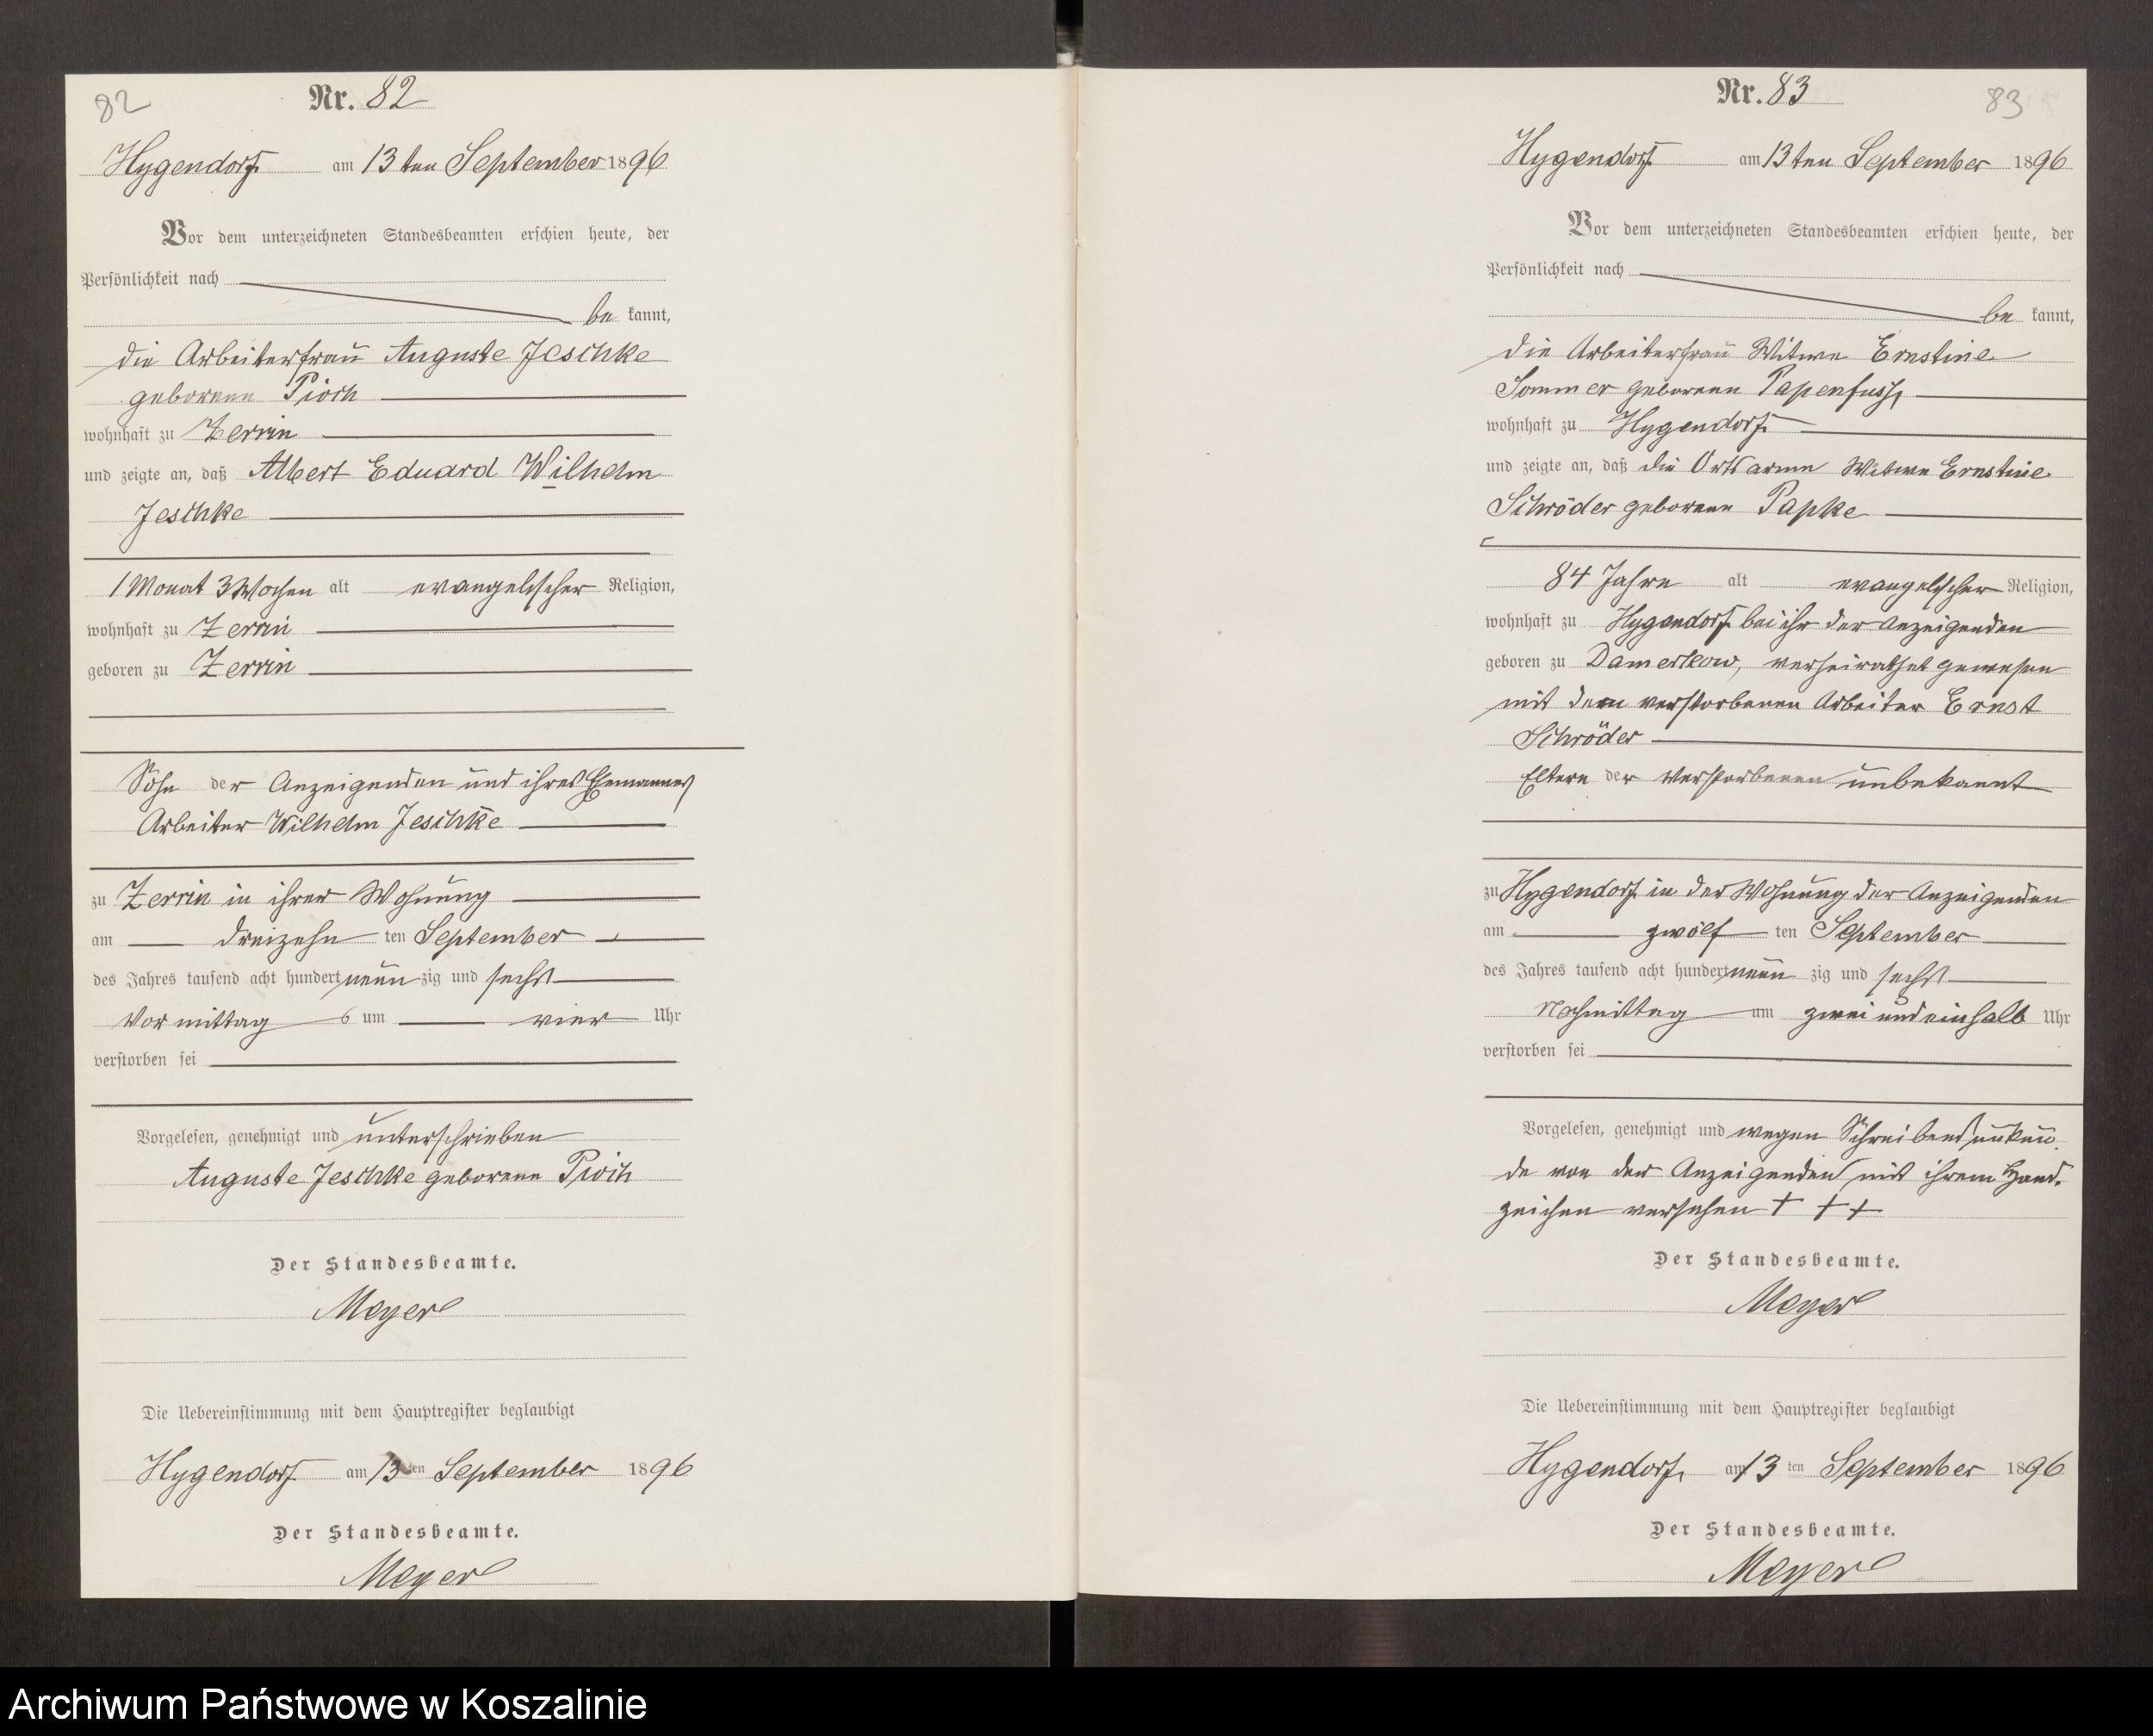 82
Nr. 82
Hygendorf am 13ten September 1896
Vor dem unterzeichneten Standesbeamten erschien heute, der
Persönlichkeit nach
be kannt,
die Arbeiterfrau Auguste Jeschke
geborene Pioch
wohnhaft zu Zerrin
und zeigte an, daß Albert Eduard Wilhelm
Jeschke
1 Monat 3 Wochen alt evangelischer Religion,
wohnhaft zu Zerrin
geboren zu Zerrin
Sohn der Anzeigenden und ihres Ehemannes
Arbeiter Wilhelm Jeschke
zu Zerrin in ihrer Wohnung
am dreizehn ten September
des Jahres tausend acht hundert neun zig und sechs
Vor mittags um vier Uhr
verstorben sei
Vorgelesen, genehmigt und unterschrieben
Auguste Jeschke geborene Pioch
Der Standesbeamte.
Meyer
Die Uebereinstimmung mit dem Hauptregister beglaubigt
Hygendorf am 13 ten September 1896
Der Standesbeamte.
Meyer
Nr. 83
83
Hygendorf am 13ten September 1896
Vor dem unterzeichneten Standesbeamten erschien heute, der
Persönlichkeit nach
be kannt,
die Arbeiterfrau Witwe Ernstine
Sommer geborene Papenfuss
wohnhaft zu Hygendorf
und zeigte an, daß die Ortsarme Witwe Ernstine
Schröder geborene Papke
84 Jahre alt evangelischer Religion,
wohnhaft zu Hygendorf bei ihr der Anzeigenden
geboren zu Damerkow, verheirathet gewesen
mit dem verstorbenen Arbeiter Ernst
Schröder
Eltern der Verstorbenen unbekannt
zu Hygendorf in der Wohnung der Anzeigenden
am zwölf ten September
des Jahres tausend acht hundert neun zig und sechs
Nachmittag um zwei und einhalb Uhr
verstorben sei
Vorgelesen, genehmigt und wegen Schreibensunkun
de von der Anzeigenden mit ihrem Hand-
zeichen versehen + + +
Der Standesbeamte.
Meyer
Die Uebereinstimmung mit dem Hauptregister beglaubigt
Hygendorf, am 13 ten September 1896
Der Standesbeamte.
Meyer
Archiwum Państwowe w Koszalinie